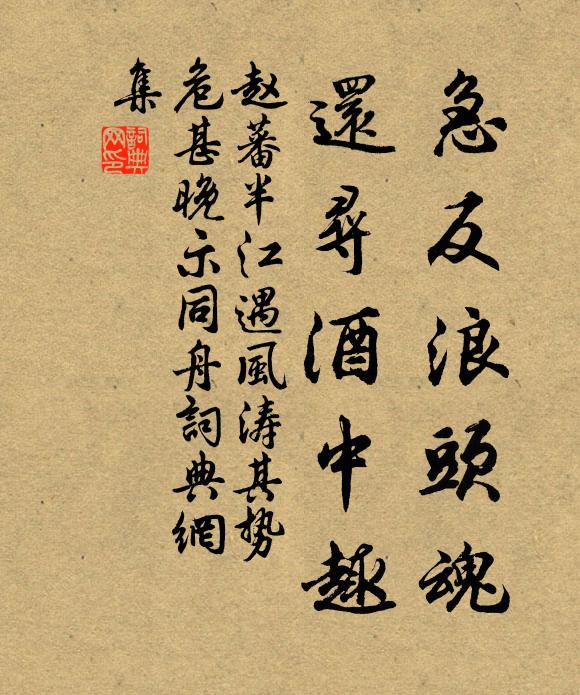 急反浪頭魂
還尋酒中趣
赵蕃半江遇風涛其势
危甚晚示同舟詞典網
集
詞典
网印